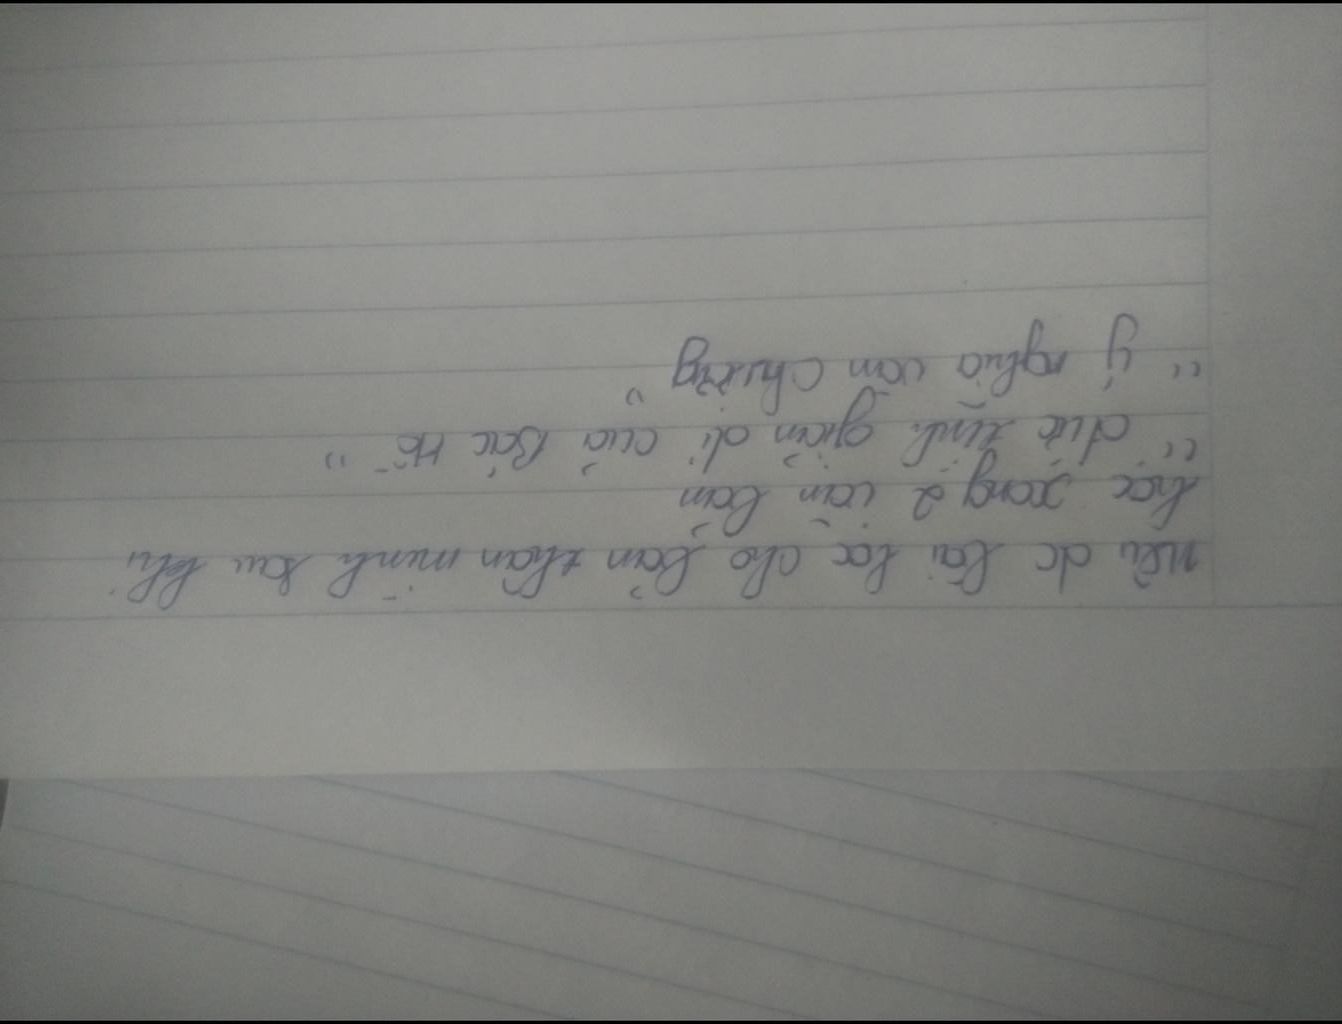 nêu dc bài học cho bản thân mình sau khi
học xong 2 văn bản
"đức tính giản dị của Bác Hồ"
"ý nghĩa văn chương"